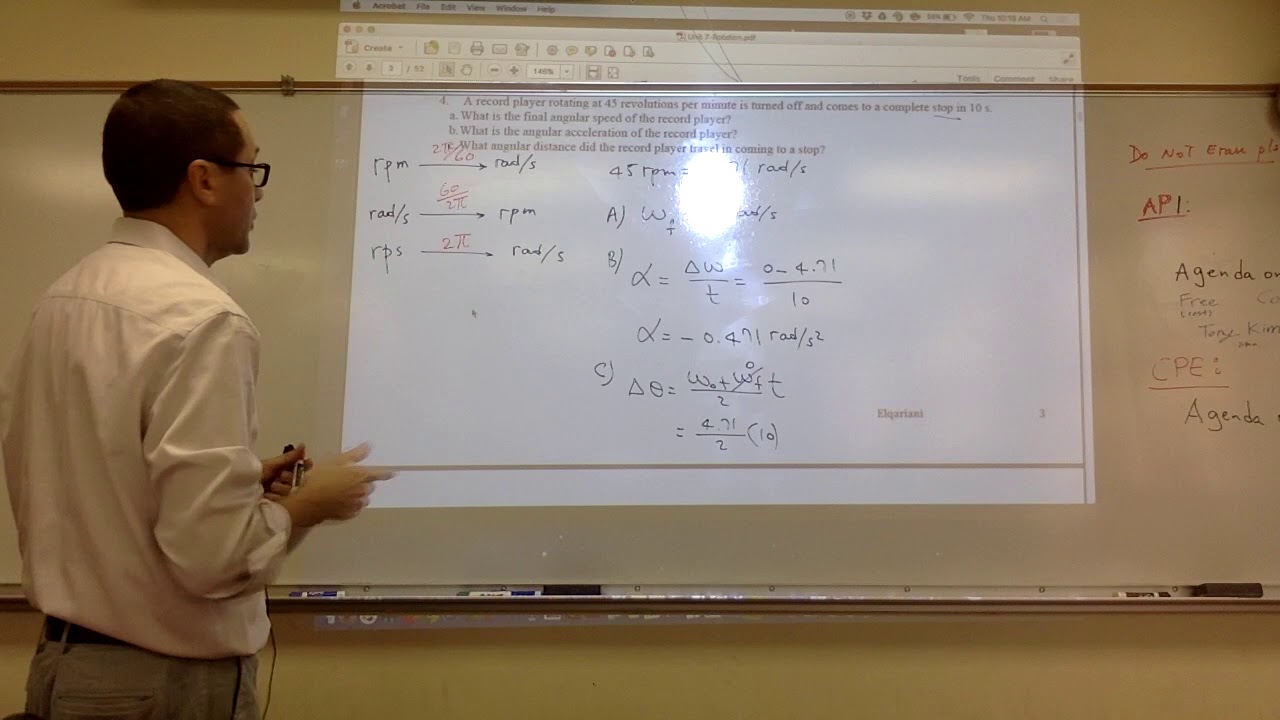 Acrobat File Edit View Window Help
Thu 10:18 AM
Unit 7-Rotation.pdf
Create
3 / 52
146%
Tools Comment Share
4. A record player rotating at 45 revolutions per minute is turned off and comes to a complete stop in 10 s.
a. What is the final angular speed of the record player?
b. What is the angular acceleration of the record player?
What angular distance did the record player travel in coming to a stop?
rpm 2π/60 rad/s
rad/s 60/2π rpm
rps 2π rad/s
45 rpm = 71 rad/s
A) ωf rad/s
B) α = Δω/t = 0 - 4.71/10
α = - 0.471 rad/s²
C) Δθ = ω₀ + ωf⁰/2 t
= 4.71/2 (10)
Elqariani
3
Do Not Erase
AP1:
Agenda
Free
Tony Kim
CPE:
Agenda